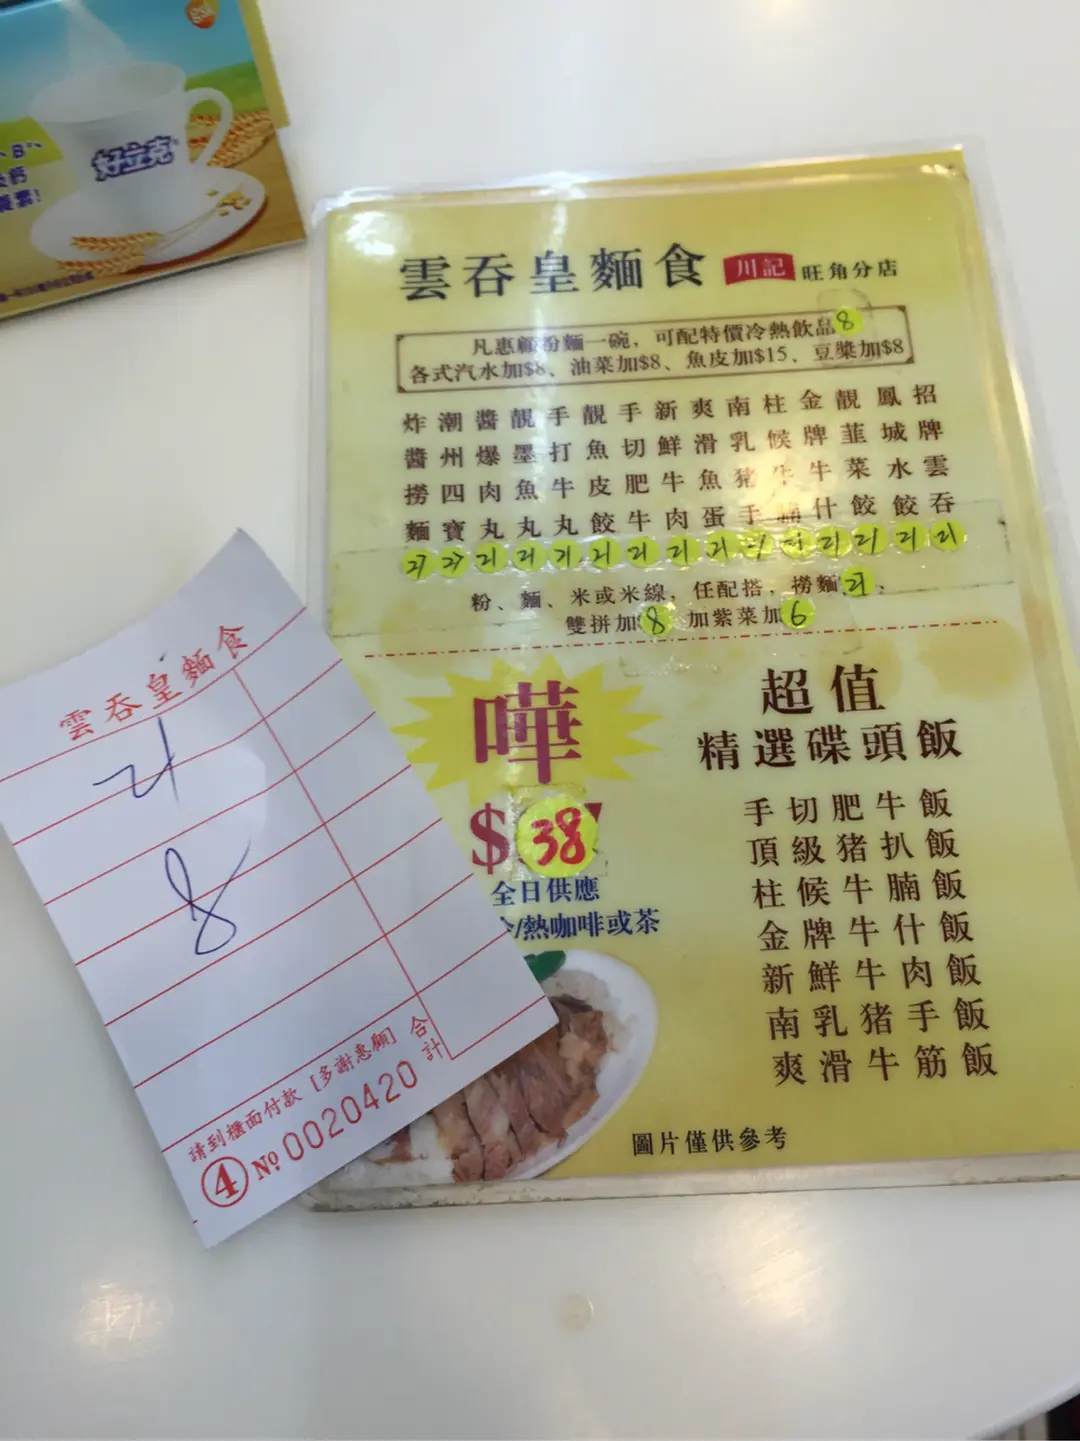 好立克
雲吞皇麵食 川記 旺角分店
凡惠顧粉麵一碗，可配特價冷熱飲品8
各式汽水加$8、油菜加$8、魚皮加$15、豆漿加$8
招牌雲吞
鳳城水餃
靚韮菜餃
金牌牛什
柱候牛腩
南乳猪手
爽滑魚蛋
新鮮牛肉
手切肥牛
靚魚皮餃
手打牛丸
靚墨魚丸
醬爆肉丸
潮州四寶
炸醬撈麵
粉、麵、米或米線，任配搭，撈麵
雙拼加8 加紫菜加6
嘩
$38
全日供應
/熱咖啡或茶
超值
精選碟頭飯
手切肥牛飯
頂級猪扒飯
柱候牛腩飯
金牌牛什飯
新鮮牛肉飯
南乳猪手飯
爽滑牛筋飯
圖片僅供參考
雲吞皇麵食
8
合計
請到櫃面付款［多謝惠顧］
④ № 0020420